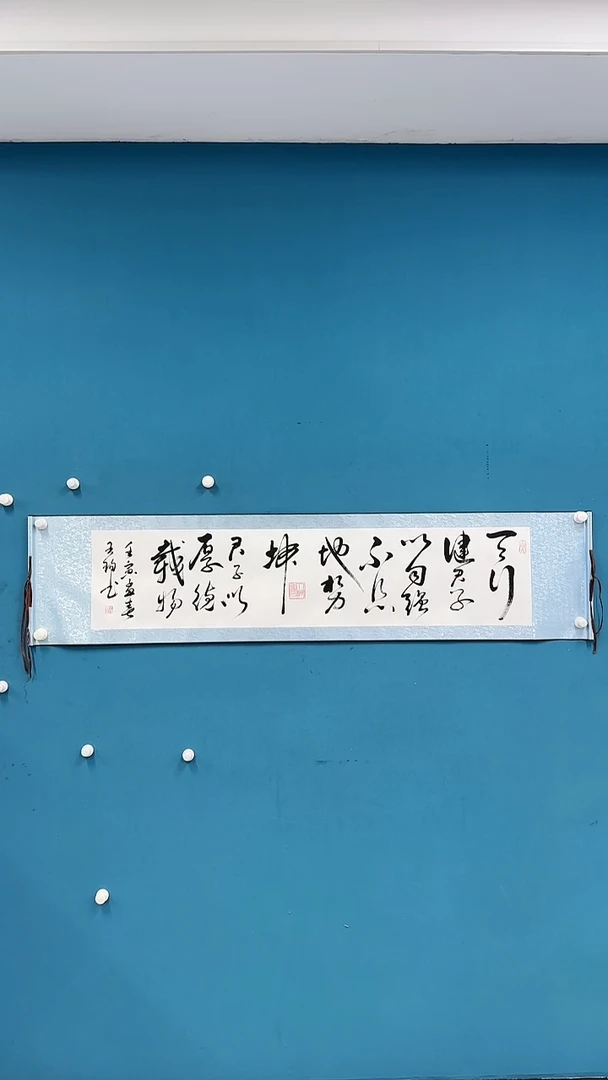 天行
健君子
以自强
不息
地势
坤
君子以
厚德
载物
壬寅孟春